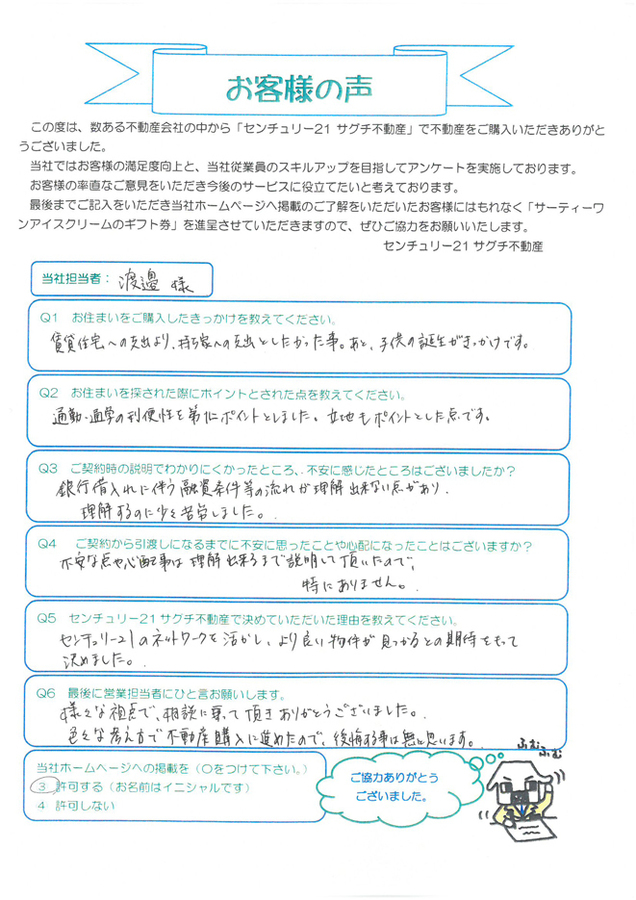 お客様の声
この度は、数ある不動産会社の中から「センチュリー21 サグチ不動産」で不動産をご購入いただきありがと
うございました。
当社ではお客様の満足度向上と、当社従業員のスキルアップを目指してアンケートを実施しております。
お客様の率直なご意見をいただき今後のサービスに役立てたいと考えております。
最後までご記入をいただき当社ホームページへ掲載のご了解をいただいたお客様にはもれなく「サーティーワ
ンアイスクリームのギフト券」を進呈させていただきますので、ぜひご協力をお願いいたします。
センチュリー21 サグチ不動産
当社担当者： 渡邉 様
Q1 お住まいをご購入したきっかけを教えてください。
賃貸住宅への支出より、持ち家への支出としたかった事。あと、子供の誕生がきっかけです。
Q2 お住まいを探された際にポイントとされた点を教えてください。
通勤・通学の利便性を第一にポイントとしました。立地もポイントとした点です。
Q3 ご契約時の説明でわかりにくかったところ、不安に感じたところはございましたか？
銀行借入れに伴う融資条件等の流れが理解出来ない点があり、
理解するのに少々苦労しました。
Q4 ご契約から引渡しになるまでに不安に思ったことや心配になったことはございますか？
不安な点や心配事は理解出来るまで説明して頂いたので、
特にありません。
Q5 センチュリー21サグチ不動産で決めていただいた理由を教えてください。
センチュリー21のネットワークを活かし、より良い物件が見つかるとの期待をもって
決めました。
Q6 最後に営業担当者にひと言お願いします。
様々な視点で、相談に乗って頂きありがとうございました。
色々な考え方で不動産購入に進めたので、後悔する事は無いと思います。
ふむふむ
当社ホームページへの掲載を（○をつけて下さい。）
3 許可する（お名前はイニシャルです）
4 許可しない
ご協力ありがとう
ございました。